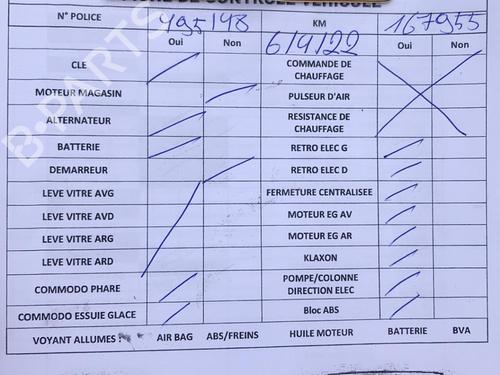 FICHE DE CONTROLE VEHICULE
N° POLICE 495148 KM 167955
Oui Non 6/9/22 Oui Non
CLE COMMANDE DE CHAUFFAGE
MOTEUR MAGASIN PULSEUR D'AIR
ALTERNATEUR RESISTANCE DE CHAUFFAGE
BATTERIE RETRO ELEC G
DEMARREUR RETRO ELEC D
LEVE VITRE AVG FERMETURE CENTRALISEE
LEVE VITRE AVD MOTEUR EG AV
LEVE VITRE ARG MOTEUR EG AR
LEVE VITRE ARD KLAXON
COMMODO PHARE POMPE/COLONNE DIRECTION ELEC
COMMODO ESSUIE GLACE Bloc ABS
VOYANT ALLUMES : AIR BAG ABS/FREINS HUILE MOTEUR BATTERIE BVA
B-PARTS